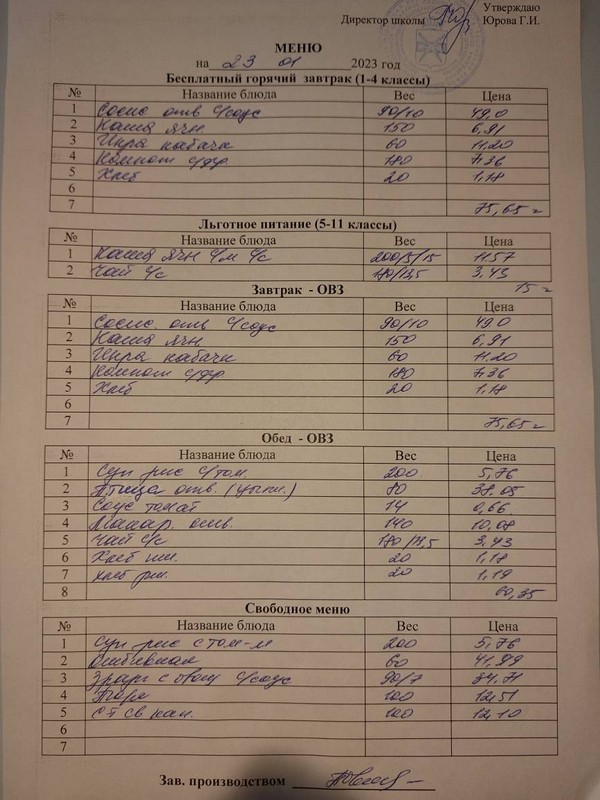 Утверждаю
Директор школы Юрова Г.И.
МЕНЮ
на 23 01 2023 год
Бесплатный горячий завтрак (1-4 классы)
№ Название блюда Вес Цена
1 Сосис отв с/соус 90/10 49,0
2 Каша ячн 150 6,91
3 Икра кабачк 60 11,20
4 Компот с/фр 180 7,36
5 Хлеб 20 1,18
6
7 75,65
Льготное питание (5-11 классы)
№ Название блюда Вес Цена
1 Каша ячн с/м с/с 200/5/15 11,57
2 Чай с/с 180/13,5 3,43
15
Завтрак - ОВЗ
№ Название блюда Вес Цена
1 Сосис. отв с/соус 90/10 49,0
2 Каша ячн. 150 6,91
3 Икра кабачк 60 11,20
4 Компот с/фр 180 7,36
5 Хлеб 20 1,18
6
7 75,65
Обед - ОВЗ
№ Название блюда Вес Цена
1 Суп рис с/том. 200 5,76
2 Птица отв. (цыпл.) 80 38,05
3 Соус томат 14 0,66
4 Макар. отв. 140 10,08
5 Чай с/с 180/13,5 3,43
6 Хлеб пш. 20 1,18
7 хлеб рж. 20 1,19
8 60,35
Свободное меню
№ Название блюда Вес Цена
1 Суп рис с том-м 200 5,76
2 Отбивная 60 41,99
3 с/соус 90/7 84,71
4 Пюре 100 12,51
5 100 12,10
6
7
Зав. производством